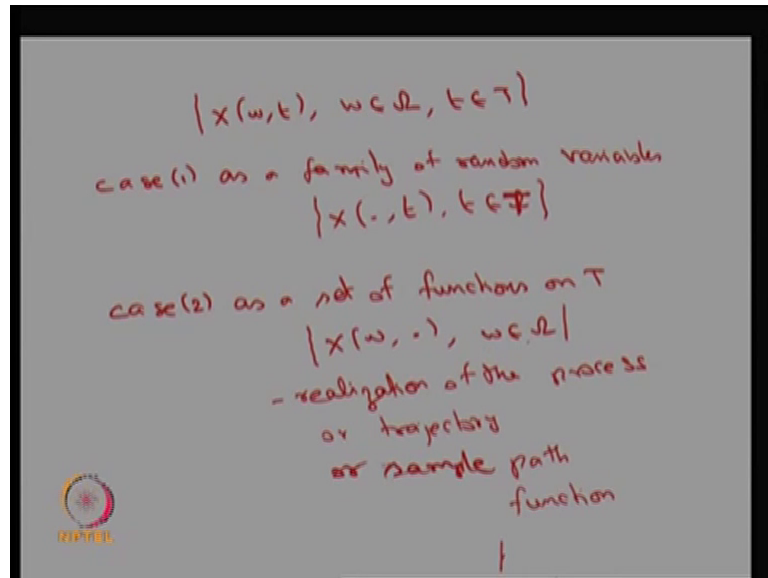 {x(w,t), w∈Ω, t∈T}
case(1) as a family of random variables
{x(.,t), t∈T}
case(2) as a set of functions on T
{x(w,.), w∈Ω}
- realization of the process
or trajectory
or sample path
function
NPTEL